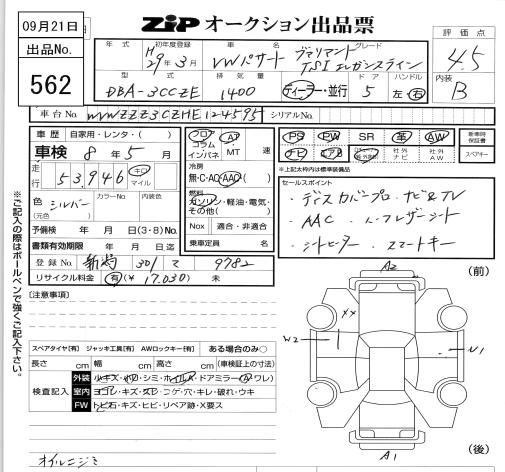 09月21日
出品No.
562
ZIP オークション出品票
評価点
4.5
内装
B
年式 初年度登録 車名 グレード
H29年3月 VWパサート ヴァリアント
TSI エレガンスライン
型式 排気量 ドア ハンドル
DBA-3CCZE 1400 ディーラー・並行 5 左・右
車台No. WVWZZZ3CZHE124595 シリアルNo.
車歴 自家用・レンタ・( )
車検 8年5月
走行 53,946 キロ マイル
色 シルバー (元色) カラーNo. 内装色
予備検 年 月 日(3・8)No.
書類有効期限 年 月 日迄
登録No. 新潟 301 9782
リサイクル料金 有(¥17.030) 未
フロア コラム インパネ AT MT 速
冷房
無・C・AC・AAC
燃料
ガソリン・軽油・電気・その他( )
Nox 適合・非適合
乗車定員 名
PS PW SR 革 AW 新車時保証書
ナビ エアB 社外ナビ 社外AW スペアキー
*上記太枠内は標準装備品
セールスポイント
・ディスカバープロ・ナビ&TV
・AAC ・ハーフレザーシート
・シートヒーター ・スマートキー
※ご記入の際はボールペンで強くご記入下さい。
[注意事項]
スペアタイヤ[有] ジャッキ工具[有] AWロックキー[有] ある場合のみ○
長さ cm 幅 cm 高さ cm (車検証上の寸法)
検査記入
外装 小キズ・凹・シミ・ホイルA・ドアミラー(A・ワレ)
室内 ヨゴレ・キズ・スレ・コゲ・穴・キレ・破れ・ウキ
FW トビ石・キズ・ヒビ・リペア跡・X要ス
オイルニジミ
(前)
A2
XX
W2
U1
A1
(後)